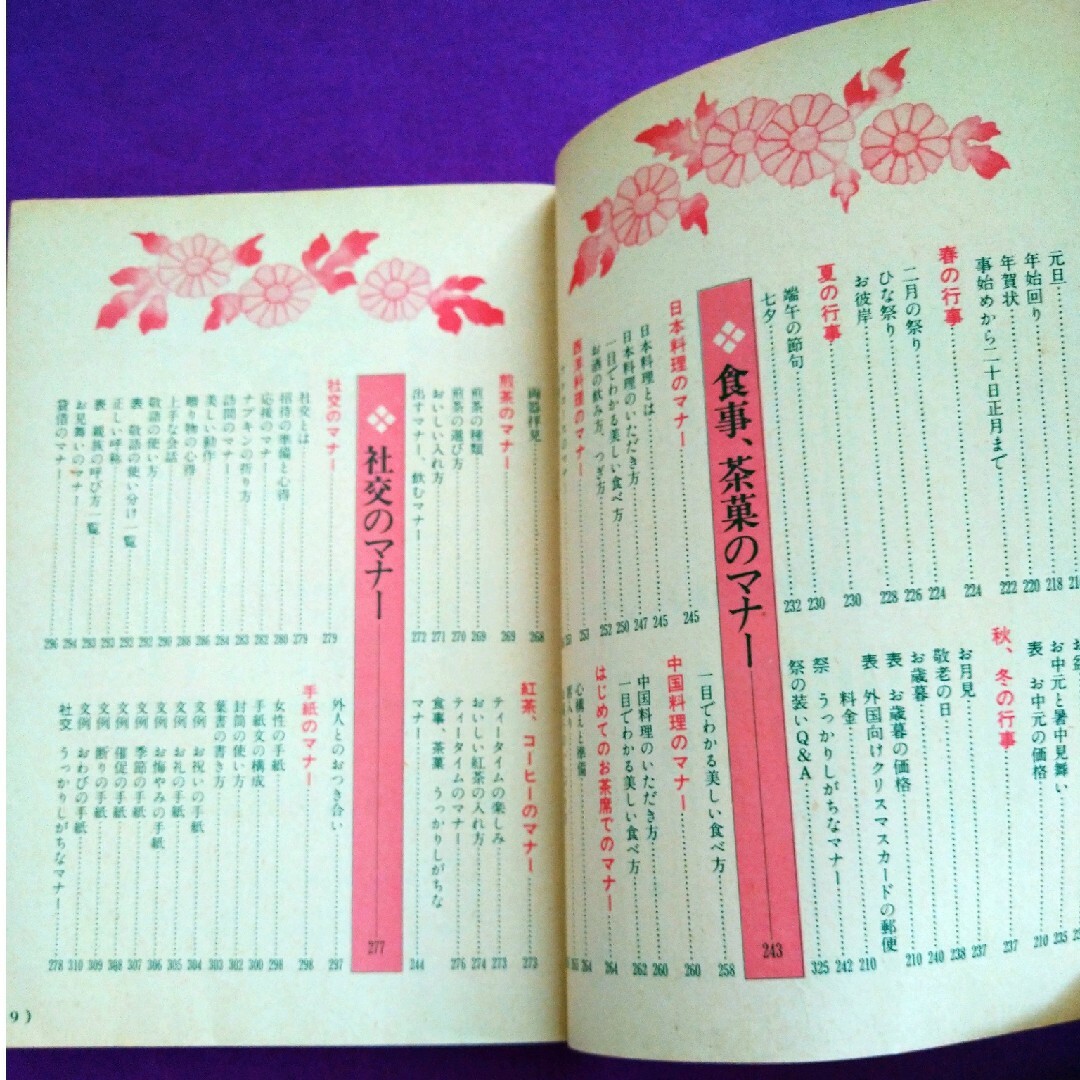 元旦
年始回り 218
年賀状 220
事始めから二十日正月まで 222
春の行事 224
二月の祭り 224
ひな祭り 226
お彼岸 228
夏の行事 230
端午の節句 230
七夕 232
お中元と暑中見舞い 235
表 お中元の価格 210
秋、冬の行事 237
お月見 237
敬老の日 238
お歳暮 240
表 お歳暮の価格 210
表 外国向けクリスマスカードの郵便
料金 210
祭 うっかりしがちなマナー 242
祭の装いQ&A 325
食事、茶菓のマナー 243
日本料理のマナー 245
日本料理とは 245
日本料理のいただき方 247
一目でわかる美しい食べ方 250
お酒の飲み方、つぎ方 252
西洋料理のマナー 253
一目でわかる美しい食べ方 258
中国料理のマナー 260
中国料理のいただき方 260
一目でわかる美しい食べ方 262
はじめてのお茶席でのマナー 264
心構えと準備 264
両器拝見 268
煎茶のマナー 269
煎茶の種類 269
煎茶の選び方 270
おいしい入れ方 271
出すマナー、飲むマナー 272
紅茶、コーヒーのマナー 273
ティータイムの楽しみ 273
おいしい紅茶の入れ方 274
ティータイムのマナー 276
食事、茶菓 うっかりしがちな
マナー 244
社交のマナー 277
社交のマナー 279
社交とは 279
招待の準備と心得 280
応接のマナー 282
ナプキンの折り方 283
訪問のマナー 284
美しい動作 286
贈り物の心得 288
上手な会話 290
敬語の使い方 292
表 敬語の使い分け一覧 292
正しい呼称 293
表 親族の呼び方一覧 293
お見舞いのマナー 294
貸借のマナー 296
外人とのおつき合い 297
手紙のマナー 298
女性の手紙 298
手紙文の構成 300
封筒の使い方 302
葉書の書き方 303
文例 お祝いの手紙 304
文例 お礼の手紙 305
文例 お悔やみの手紙 306
文例 季節の手紙 307
文例 催促の手紙 308
文例 断りの手紙 309
文例 おわびの手紙 310
社交 うっかりしがちなマナー 278
9)